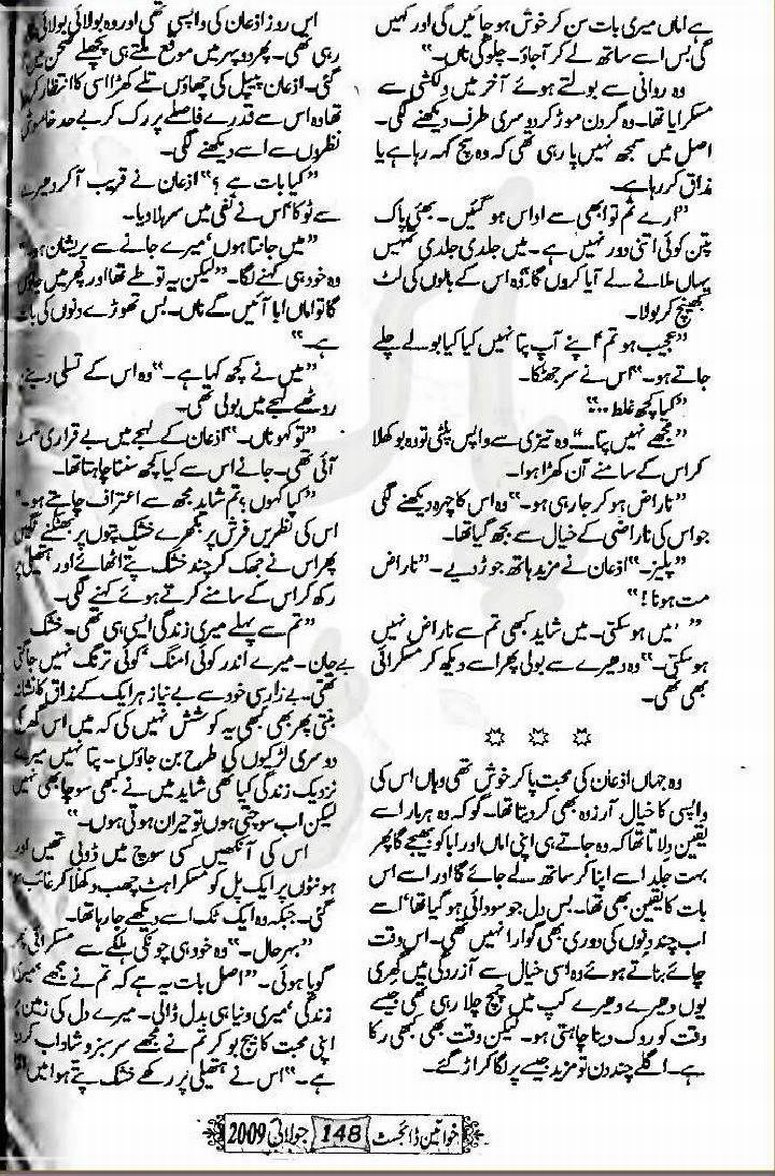 ہے اماں میری بات سن کر خوش ہو جائیں گی اور کہیں
گی بس اسے ساتھ لے کر آجاؤ۔ چلو گی ناں۔"
وہ روانی سے بولتے ہوئے آخر میں دلکشی سے
مسکرایا تھا۔ وہ گردن موڑ کر دوسری طرف دیکھنے لگی۔
اصل میں سمجھ نہیں پا رہی تھی کہ وہ سچ کہہ رہا ہے یا
مذاق کر رہا ہے۔
"ارے تم تو ابھی سے اداس ہو گئیں۔ بھئی پاک
پتن کوئی اتنی دور نہیں ہے۔ میں جلدی جلدی تمہیں
یہاں ملانے لے آیا کروں گا۔" وہ اس کے بالوں کی لٹ
کھینچ کر بولا۔
"عجیب ہو تم' اپنے آپ پتا نہیں کیا کیا بولے چلے
جاتے ہو۔" اس نے سر جھٹکا۔
"کیا کچھ غلط ۔۔؟"
"مجھے نہیں پتا۔" وہ تیزی سے واپس پلٹی تو وہ بوکھلا
کر اس کے سامنے آن کھڑا ہوا۔
"ناراض ہو کر جا رہی ہو۔" وہ اس کا چہرہ دیکھنے لگی
جو اس کی ناراضی کے خیال سے بجھ گیا تھا۔
"پلیز۔" اذعان نے مزید ہاتھ جوڑ دیے۔ "ناراض
مت ہونا!"
"نہیں ہو سکتی۔ میں شاید کبھی تم سے ناراض نہیں
ہو سکتی۔" وہ دھیرے سے بولی پھر اسے دیکھ کر مسکرائی
بھی تھی۔
☼ ☼ ☼
وہ جہاں اذعان کی محبت پا کر خوش تھی وہاں اس کی
واپسی کا خیال آزردہ بھی کر دیتا تھا۔ گو کہ وہ ہر بار اسے
یقین دلاتا تھا کہ وہ جاتے ہی اپنی اماں اور ابا کو بھیجے گا پھر
بہت جلد اسے اپنا کر ساتھ لے جائے گا اور اسے اس
بات کا یقین بھی تھا۔ بس دل جو سودائی ہو گیا تھا' اسے
اب چند دنوں کی دوری بھی گوارا نہیں تھی۔ اس وقت
چائے بناتے ہوئے وہ اسی خیال سے آزردگی میں گھری
یوں دھیرے دھیرے کپ میں چمچ چلا رہی تھی جیسے
وقت کو روک دینا چاہتی ہو۔ لیکن وقت بھی کبھی رکا
ہے۔ اگلے چند دن تو مزید جیسے پر لگا کر اڑ گئے۔
اس روز اذعان کی واپسی تھی اور وہ بولائی بولائی
رہی تھی۔ پھر دوپہر میں موقع ملتے ہی پچھلے صحن میں
گئی۔ اذعان پیپل کی چھاؤں تلے کھڑا اسی کا انتظار کر
تھا وہ اس سے قدرے فاصلے پر رک کر بے حد خاموش
نظروں سے اسے دیکھنے لگی۔
"کیا بات ہے؟" اذعان نے قریب آکر دھیرے
سے ٹوکا' اس نے نفی میں سر ہلا دیا۔
"میں جانتا ہوں' میرے جانے سے پریشان ہو۔"
وہ خود ہی کہنے لگا۔ "لیکن یہ تو طے تھا اور پھر میں جاؤں
گا تو اماں ابا آئیں گے ناں۔ بس تھوڑے دنوں کی بات
ہے۔"
"میں نے کچھ کہا ہے۔" وہ اس کے تسلی دینے پر
روٹھے لہجے میں بولی تھی۔
"تو کہو ناں۔" اذعان کے لہجے میں بے قراری سمٹ
آئی تھی۔ جانے اس سے کیا کچھ سننا چاہتا تھا۔
"کیا کہوں' تم شاید مجھ سے اعتراف چاہتے ہو۔"
اس کی نظریں فرش پر بکھرے خشک پتوں پر بھٹکنے لگیں
پھر اس نے جھک کر چند خشک پتے اٹھائے اور ہتھیلی پر
رکھ کر اس کے سامنے کرتے ہوئے کہنے لگی۔
"تم سے پہلے میری زندگی ایسی ہی تھی۔ خشک
بے جان۔ میرے اندر کوئی امنگ' کوئی ترنگ نہیں جاگتی
تھی۔ بے زار سی خود سے بے نیاز ہر ایک کے مذاق کا نشانہ
بنتی پھر بھی کبھی یہ کوشش نہیں کی کہ میں اس گھر کی
دوسری لڑکیوں کی طرح بن جاؤں۔ پتا نہیں میرے
نزدیک زندگی کیا تھی شاید میں نے کبھی سوچا بھی نہیں
لیکن اب سوچتی ہوں تو حیران ہوتی ہوں۔"
اس کی آنکھیں کسی سوچ میں ڈوبی تھیں اور
ہونٹوں پر ایک پل کو مسکراہٹ چھب دکھلا کر غائب ہو
گئی۔ جبکہ وہ ایک ٹک اسے دیکھے جا رہا تھا۔
"بہر حال۔" وہ خود ہی چونکی ہلکے سے مسکرائی پھر
گویا ہوئی۔ "اصل بات یہ ہے کہ تم نے مجھے' میری
زندگی' میری دنیا ہی بدل ڈالی۔ میرے دل کی زمین پر
اپنی محبت کا بیج بو کر تم نے مجھے سرسبز و شاداب کر دیا
ہے۔" اس نے ہتھیلی پر رکھے خشک پتے ہوا میں
خواتین ڈائجسٹ 148 جولائی 2009